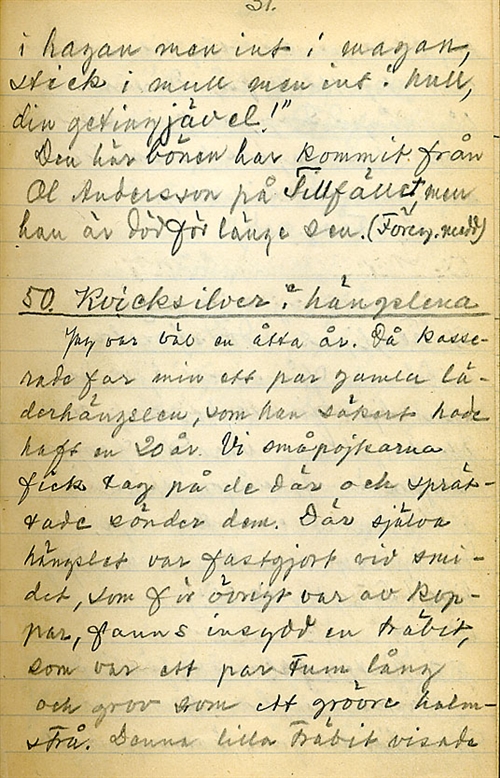 51.
i hagan men int i magan,
stick i mull men int i hull,
din getingjävel!"
Den här bönen har kommit från
Ol Andersson på Tillfället men
han är död för länge sen. (Föreg. medd)
50. Kvicksilver i hängslena
Jag var väl en åtta år. Då kasse-
rade far min ett par gamla lä-
derhängslen, som han säkert hade
haft en 20 år. Vi småpojkarna
fick tag på de där och sprät-
tade sönder dem. Där själva
hängslet var fastgjort vid smi-
det, som för övrigt var av kop-
par, fanns insydd en träbit,
som var ett par tum lång
och grov som ett grövre halm-
strå. Denna lilla träbit visade